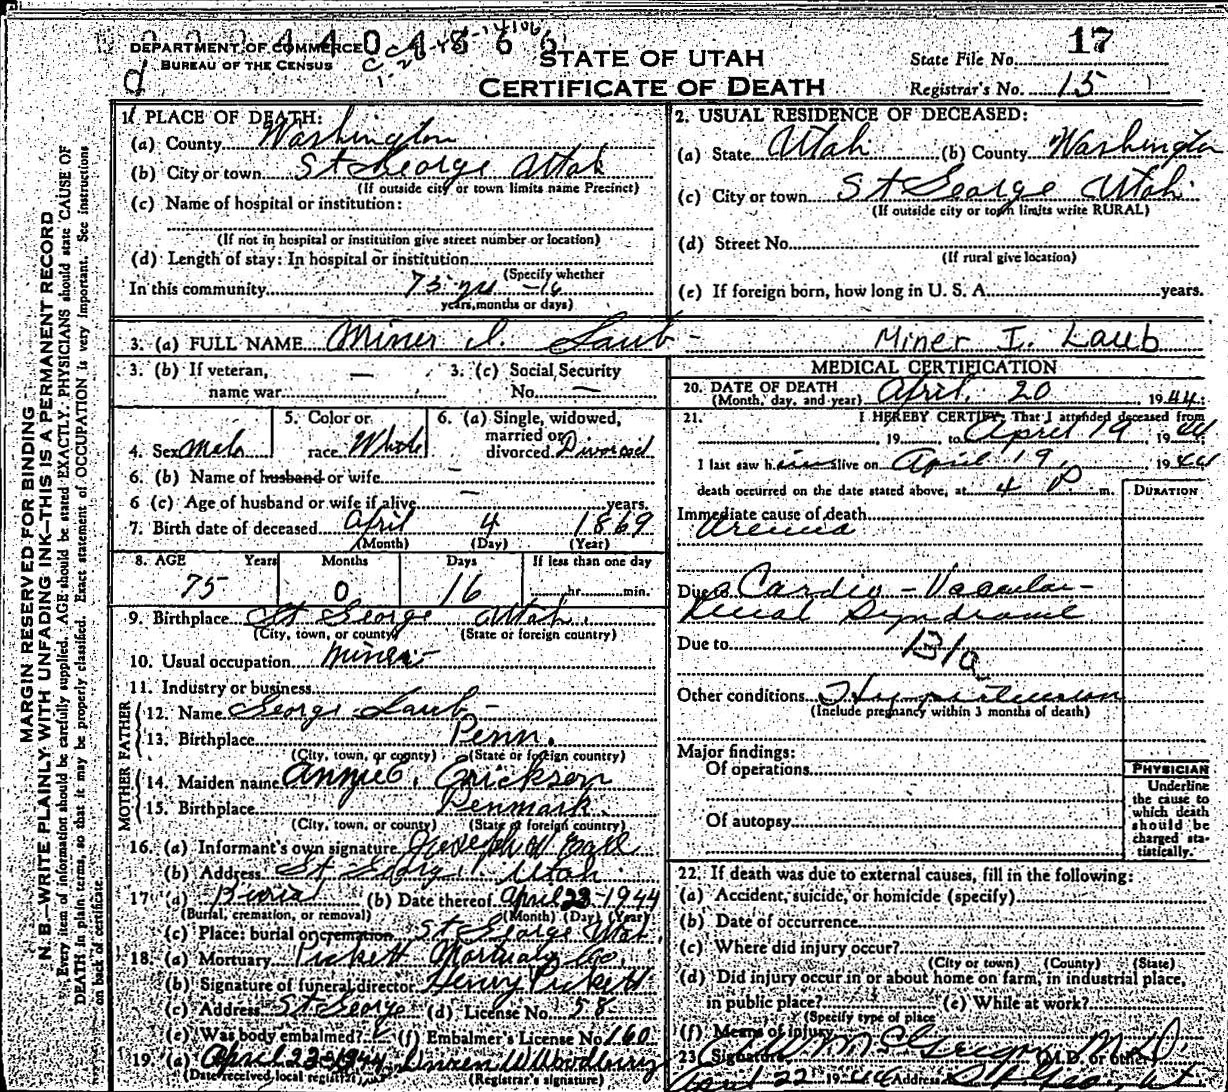 DEPARTMENT OF COMMERCE
BUREAU OF THE CENSUS
STATE OF UTAH
CERTIFICATE OF DEATH
State File No. 17
Registrar's No. 15
MARGIN RESERVED FOR BINDING
N. B.—WRITE PLAINLY WITH UNFADING INK—THIS IS A PERMANENT RECORD
Every item of information should be carefully supplied. AGE should be stated EXACTLY. PHYSICIANS should state CAUSE OF
DEATH in plain terms, so that it may be properly classified. Exact statement of OCCUPATION is very important. See instructions
on back of certificate
1. PLACE OF DEATH:
(a) County Washington
(b) City or town St George Utah
(If outside city or town limits name Precinct)
(c) Name of hospital or institution:
(If not in hospital or institution give street number or location)
(d) Length of stay: In hospital or institution
(Specify whether
In this community 75 yrs - 16
years, months or days)
2. USUAL RESIDENCE OF DECEASED:
(a) State Utah (b) County Washington
(c) City or town St George Utah
(If outside city or town limits write RURAL)
(d) Street No.
(If rural give location)
(e) If foreign born, how long in U. S. A. years.
3. (a) FULL NAME Miner I. Laub - Miner I. Laub
3. (b) If veteran, — 3. (c) Social Security
name war No. —
4. Sex Male 5. Color or race White 6. (a) Single, widowed, married or divorced Divorced
6. (b) Name of husband or wife
6 (c) Age of husband or wife if alive — years.
7. Birth date of deceased April 4 1869
(Month) (Day) (Year)
8. AGE Years Months Days If less than one day
75 0 16 hr. min.
9. Birthplace St George Utah
(City, town, or county) (State or foreign country)
10. Usual occupation Miner
11. Industry or business
FATHER
12. Name George Laub
13. Birthplace Penn.
(City, town, or county) (State or foreign country)
MOTHER
14. Maiden name Annie C. Erickson
15. Birthplace Denmark
(City, town, or county) (State or foreign country)
16. (a) Informant's own signature Joseph W
(b) Address St George Utah
17 (a) Burial (b) Date thereof April 23-1944
(Burial, cremation, or removal) (Month) (Day) (Year)
(c) Place: burial or cremation St George Utah
18. (a) Mortuary Pickett Mortuary Co.
(b) Signature of funeral director Henry Pickett
(c) Address St George (d) License No. 58
(e) Was body embalmed? (f) Embalmer's License No. 160
19 (a) April 22-1944 W Woodbury
(Date received local registrar) (Registrar's signature)
MEDICAL CERTIFICATION
20. DATE OF DEATH
(Month, day, and year) April 20 1944
21. I HEREBY CERTIFY, That I attended deceased from
, 19 , to April 19 1944
I last saw him alive on April 19, 1944
death occurred on the date stated above, at 4 P. m.
DURATION
Immediate cause of death
Uremia
Due to Cardio-Vascular-
Renal Syndrome
Due to
131a
Other conditions Hypertension
(Include pregnancy within 3 months of death)
Major findings:
Of operations
Of autopsy
PHYSICIAN
Underline
the cause to
which death
should be
charged sta-
tistically.
22. If death was due to external causes, fill in the following:
(a) Accident, suicide, or homicide (specify)
(b) Date of occurrence
(c) Where did injury occur?
(City or town) (County) (State)
(d) Did injury occur in or about home on farm, in industrial place,
in public place? (e) While at work?
(Specify type of place)
(f) Means of injury
23 (Signature) McGregor (M.D. or other) M.D.
April 22 1944 Address St George Ut.